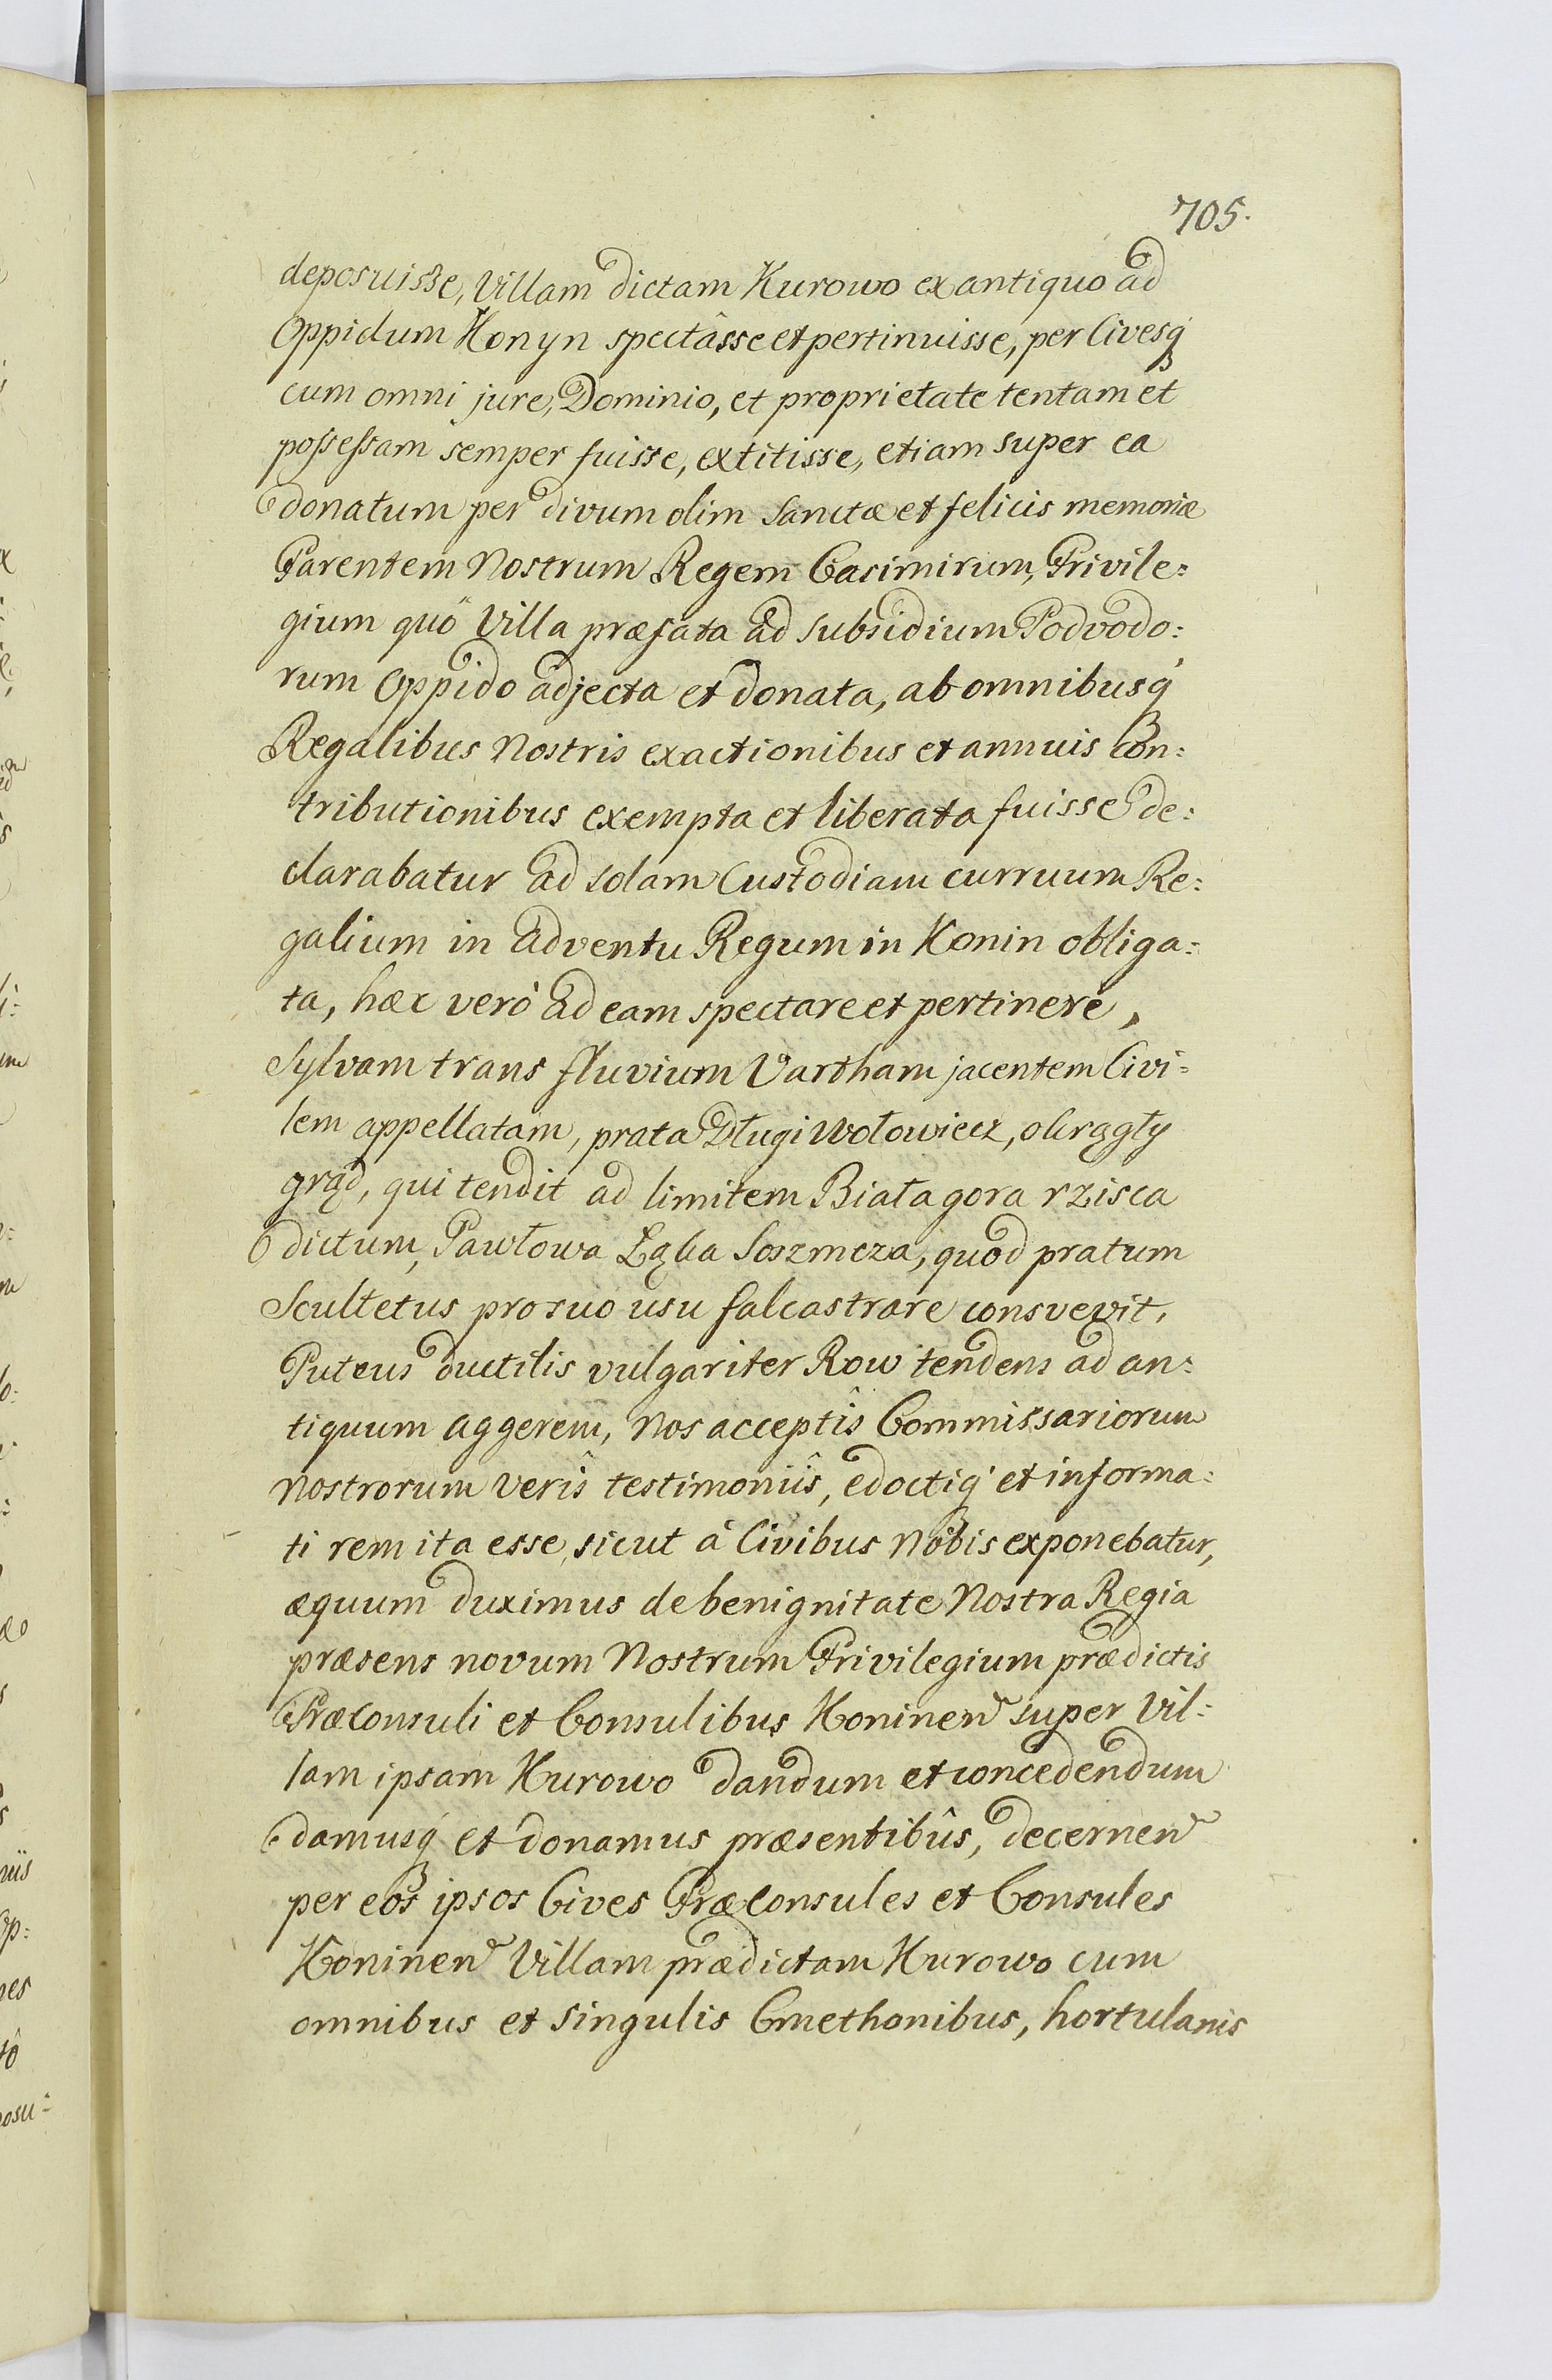 705.
deposuisse, Villam dictam Kurowo ex antiquo ad
Oppidum Konyn spectâsse et pertinuisse, per Civesq
cum omni jure, Dominio, et proprietate tentam et
possessam semper fuisse, extitisse, etiam super ea
donatum per divum olim Sanctæ et felicis memoriæ
Parentem Nostrum Regem Casimirum, Privile=
gium quô Villa præfata ad Subsidium Podvodo=
rum Oppido adjecta et donata, ab omnibusq́
Regalibus Nostris exactionibus et annuis Con=
tributionibus exempta et liberata fuisse de=
clarabatur ad solam Custodiam curruum Re=
galium in adventu Regum in Konin obliga=
ta, hæc verò ad eam spectare et pertinere,
Sylvam trans fluvium Vartham jacentem Civi=
lem appellatam, prata Długi Wołowiecz, okrągły
grąd, qui tendit ad limitem Białagora rzisca
dictum, Pawłowa Łąka Soszmcza, quod pratum
Scultetus pro suo usu falcastrare consvevit,
Puteus ductilis vulgariter Row tendens ad an=
tiquum aggerem, Nos acceptîs Commissariorum
Nostrorum verîs testimoniîs, edoctiq́ et informa=
ti rem ita esse, sicut à Civibus Nobis exponebatur,
æquum duximus de benignitate Nostra Regia
præsens novum Nostrum Privilegium prædictis
Præconsuli et Consulibus Koninen super Vil=
lam ipsam Kurowo dandum et concedendum
damusq́ et donamus præsentibûs, decernen
per eos ipsos Cives Præconsules et Consules
Koninen Villam prædictam Kurowo cum
omnibus et singulis Cmethonibus, hortulanis